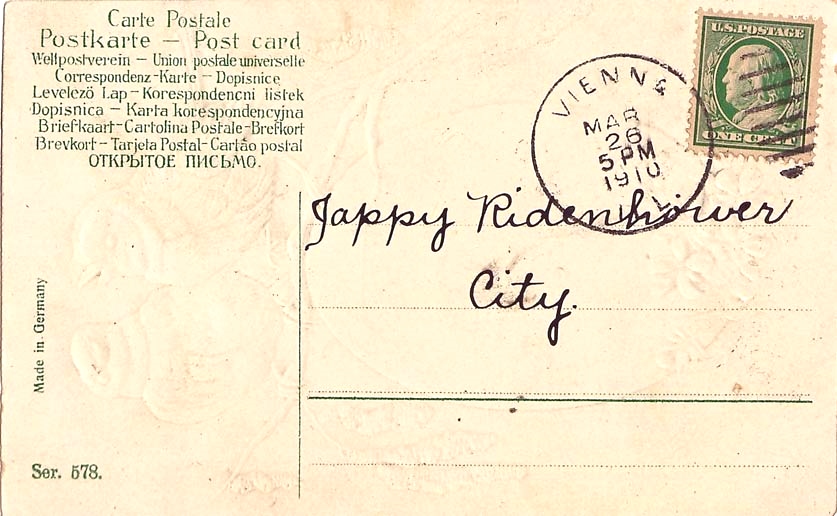 Carte Postale
Postkarte — Post card
Weltpostverein — Union postale universelle
Correspondenz-Karte — Dopisnice
Levelező Lap — Korespondencni listek
Dopisnica — Karta korespondencyjna
Briefkaart — Cartolina Postale - Brefkort
Brevkort — Tarjeta Postal - Cartão postal
ОТКРЫТОЕ ПИСЬМО.
U.S. POSTAGE
ONE CENT
VIENNA
MAR
26
5 PM
1910
ILL.
Jappy Ridenhower
City.
Made in Germany
Ser. 578.